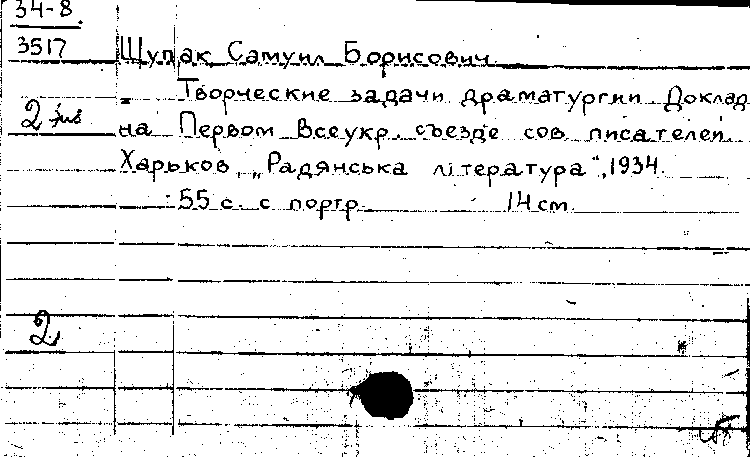 34-8
3517
Щупак Самуил Борисович
Творческие задачи драматургии Доклад
2 экз
на Первом Всеукр. съезде сов. писателей.
Харьков, „Радянська література“, 1934.
55 с. с портр. 14 см
2